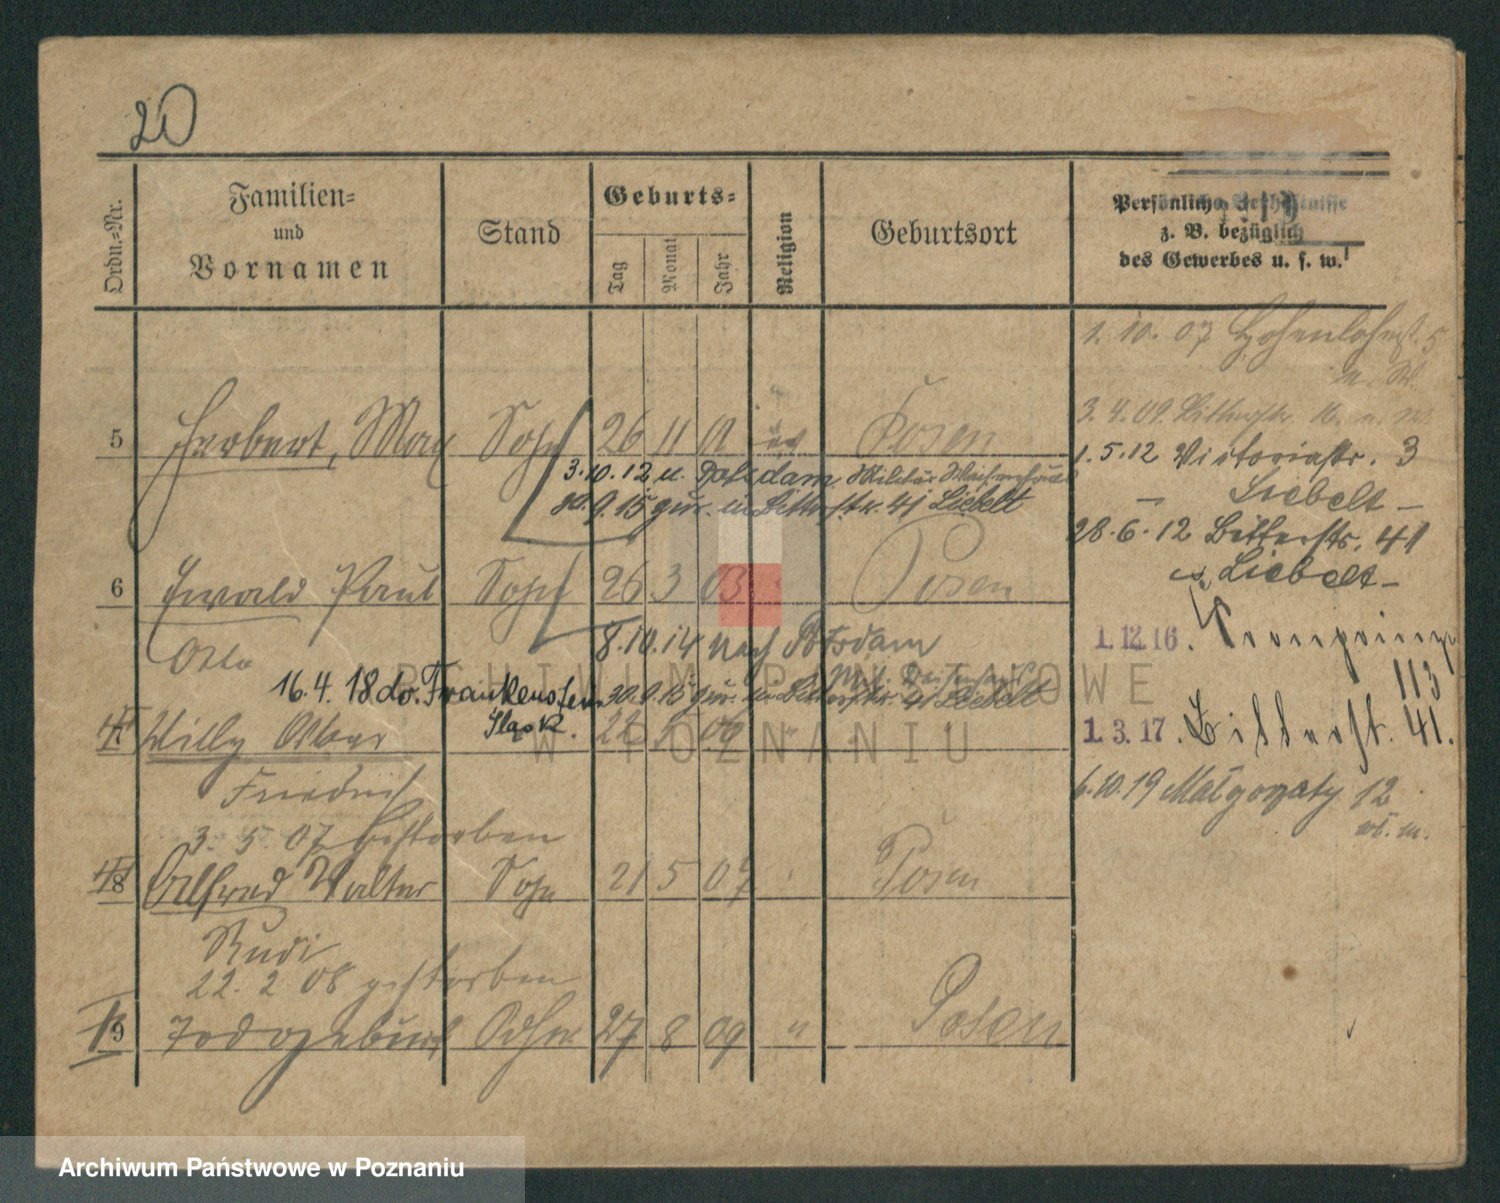 20
Ordn.-Nr.
Familien-
und
Vornamen
Stand
Geburts-
Tag
Monat
Jahr
Religion
Geburtsort
Persönliche Verhältnisse
z. B. bezüglich
des Gewerbes u. s. w.
1. 10. 07 Hohenlohestr. 5
3. 4. 09.
5 Herbert, Max Sohn 26 11 01 Posen
1. 5. 12 Viktoriastr. 3
3. 10. 12 n. Potsdam. Militär Waisenhaus
Liebelt
30. 9. 15 zur. in Bitterstr. 41 Liebelt
28. 6. 12 Bitterstr. 41
b. Liebelt
6 Ewald Paul Sohn 26 3 03 Posen
Otto
8. 10. 14 nach Potsdam
1. 12. 16. Kronprinz
113
16. 4. 18 do. Frankenstein 30. 9. 15 zur. in Bitterstr. 41 Liebelt
Śląsk.
Willy Oskar
1. 3. 17. Bitterst. 41.
Friedrich
6. 10. 19 Małgorzaty 12
3. 5. 07 gestorben
8 Alfred Walter Sohn 21 5 07 Posen
Rudi
22. 2 08 gestorben
9 Todtgeburt 27 8 09 " Posen
ARCHIWUM PAŃSTWOWE
W POZNANIU
Archiwum Państwowe w Poznaniu